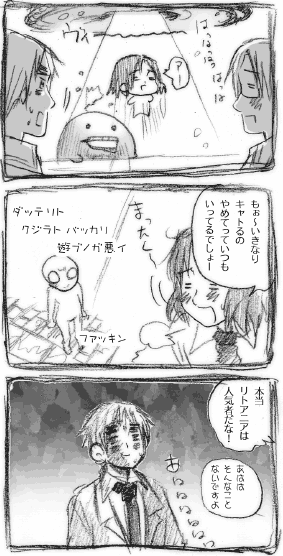 ウィーーーン
はっはっはっはっ
?
もぉ〜いきなり
キャトるの
やめてっていつも
いってるでしょ
まったく〜
ダッテリト
クジラト バッカリ
遊ブノガ悪イ
ファッキン
本当
リトアニアは
人気者だな!
あははは
そんなこと
ないですよ